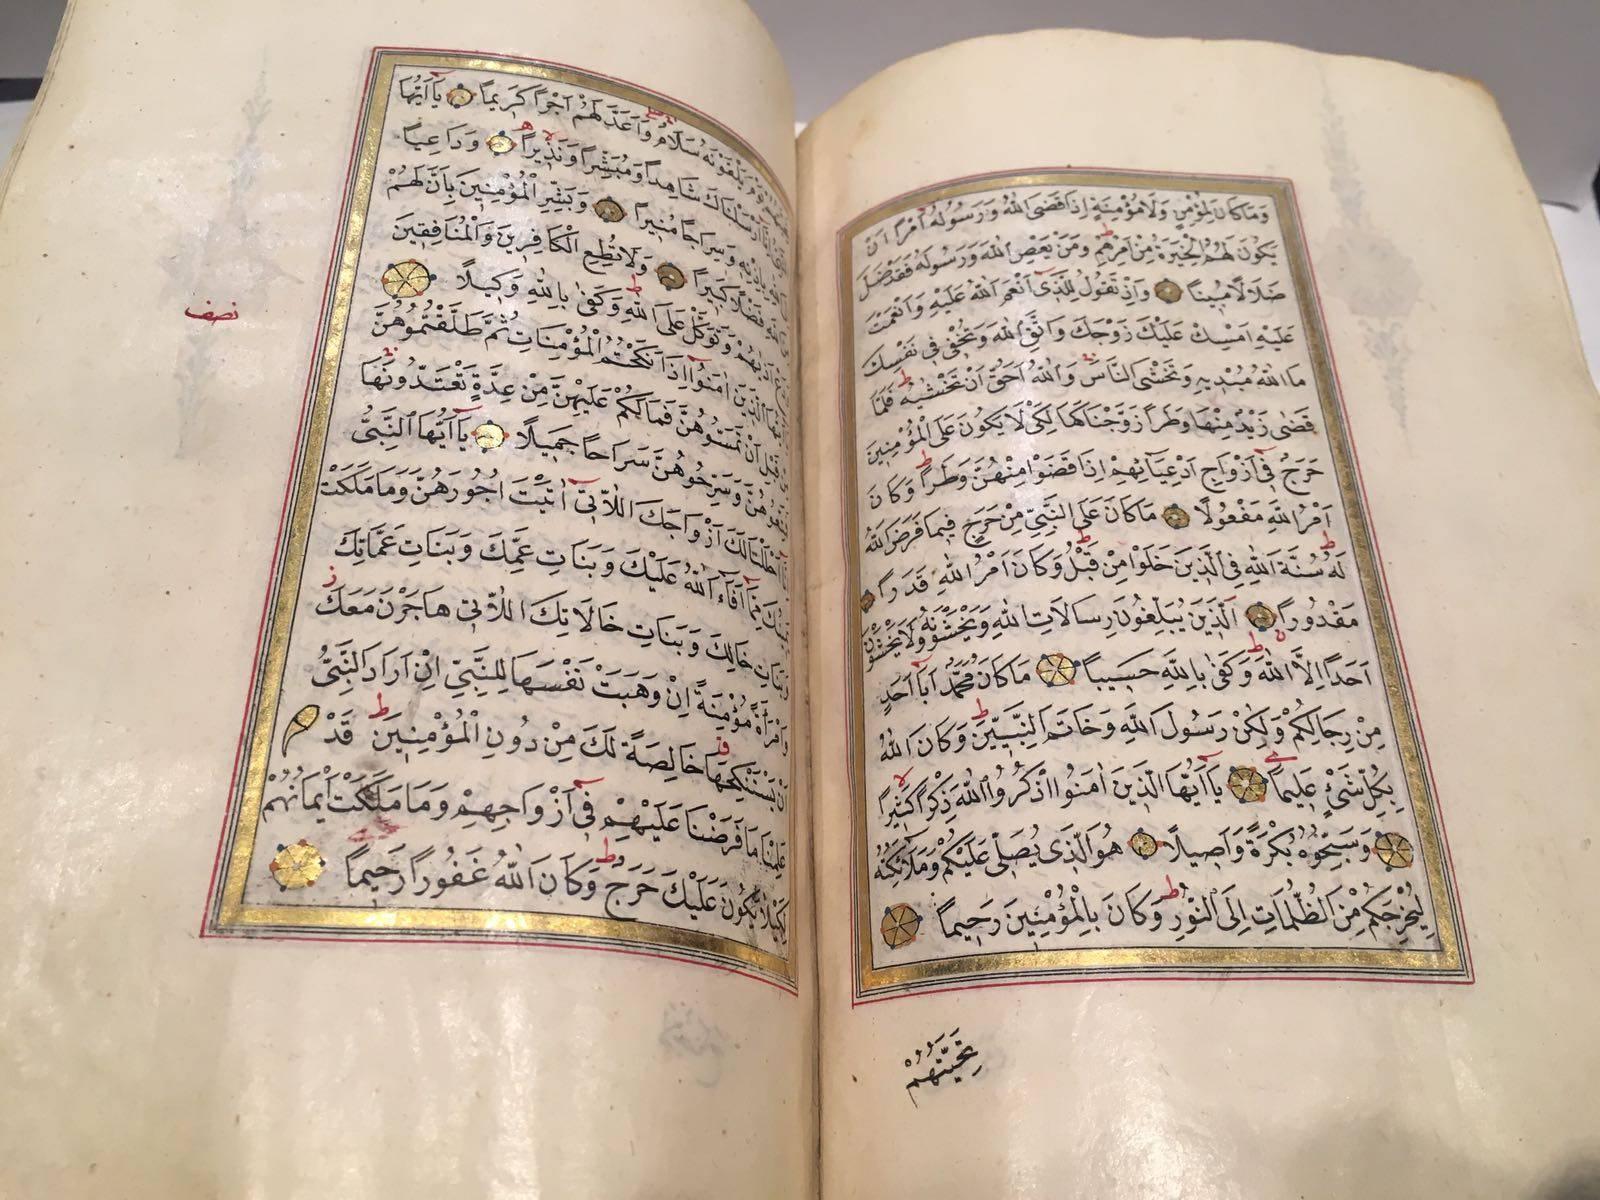 وَمَا كَانَ لِمُؤْمِنٍ وَلَا مُؤْمِنَةٍ اِذَا قَضَى اللّٰهُ وَرَسُولُهُ اَمْرًا اَنْ
يَكُونَ لَهُمُ الْخِيَرَةُ مِنْ اَمْرِهِمْ وَمَنْ يَعْصِ اللّٰهَ وَرَسُولَهُ فَقَدْ ضَلَّ
ضَلَالًا مُبِينًا وَاِذْ تَقُولُ لِلَّذِى اَنْعَمَ اللّٰهُ عَلَيْهِ وَاَنْعَمْتَ
عَلَيْهِ اَمْسِكْ عَلَيْكَ زَوْجَكَ وَاتَّقِ اللّٰهَ وَتُخْفِى فِى نَفْسِكَ
مَا اللّٰهُ مُبْدِيهِ وَتَخْشَى النَّاسَ وَاللّٰهُ اَحَقُّ اَنْ تَخْشٰيهُ فَلَمَّا
قَضٰى زَيْدٌ مِنْهَا وَطَرًا زَوَّجْنَاكَهَا لِكَىْ لَا يَكُونَ عَلَى الْمُؤْمِنِينَ
حَرَجٌ فِى اَزْوَاجِ اَدْعِيَائِهِمْ اِذَا قَضَوْا مِنْهُنَّ وَطَرًا وَكَانَ
اَمْرُ اللّٰهِ مَفْعُولًا مَا كَانَ عَلَى النَّبِىِّ مِنْ حَرَجٍ فِيمَا فَرَضَ اللّٰهُ
لَهُ سُنَّةَ اللّٰهِ فِى الَّذِينَ خَلَوْا مِنْ قَبْلُ وَكَانَ اَمْرُ اللّٰهِ قَدَرًا
مَقْدُورًا اَلَّذِينَ يُبَلِّغُونَ رِسَالَاتِ اللّٰهِ وَيَخْشَوْنَهُ وَلَا يَخْشَوْنَ
اَحَدًا اِلَّا اللّٰهَ وَكَفٰى بِاللّٰهِ حَسِيبًا مَا كَانَ مُحَمَّدٌ اَبَا اَحَدٍ
مِنْ رِجَالِكُمْ وَلٰكِنْ رَسُولَ اللّٰهِ وَخَاتَمَ النَّبِيِّينَ وَكَانَ اللّٰهُ
بِكُلِّ شَىْءٍ عَلِيمًا يَا اَيُّهَا الَّذِينَ اٰمَنُوا اذْكُرُوا اللّٰهَ ذِكْرًا كَثِيرًا
وَسَبِّحُوهُ بُكْرَةً وَاَصِيلًا هُوَ الَّذِى يُصَلِّى عَلَيْكُمْ وَمَلٰئِكَتُهُ
لِيُخْرِجَكُمْ مِنَ الظُّلُمَاتِ اِلَى النُّورِ وَكَانَ بِالْمُؤْمِنِينَ رَحِيمًا
تَحِيَّتُهُمْ
يَوْمَ يَلْقَوْنَهُ سَلَامٌ وَاَعَدَّ لَهُمْ اَجْرًا كَرِيمًا يَا اَيُّهَا
اَرْسَلْنَاكَ شَاهِدًا وَمُبَشِّرًا وَنَذِيرًا وَدَاعِيًا
بِاِذْنِهِ وَسِرَاجًا مُنِيرًا وَبَشِّرِ الْمُؤْمِنِينَ بِاَنَّ لَهُمْ
فَضْلًا كَبِيرًا وَلَا تُطِعِ الْكَافِرِينَ وَالْمُنَافِقِينَ
وَتَوَكَّلْ عَلَى اللّٰهِ وَكَفٰى بِاللّٰهِ وَكِيلًا
الَّذِينَ اٰمَنُوا اِذَا نَكَحْتُمُ الْمُؤْمِنَاتِ ثُمَّ طَلَّقْتُمُوهُنَّ
قَبْلِ اَنْ تَمَسُّوهُنَّ فَمَا لَكُمْ عَلَيْهِنَّ مِنْ عِدَّةٍ تَعْتَدُّونَهَا
وَسَرِّحُوهُنَّ سَرَاحًا جَمِيلًا يَا اَيُّهَا النَّبِىُّ
اَحْلَلْنَا لَكَ اَزْوَاجَكَ اللَّاتِى اٰتَيْتَ اُجُورَهُنَّ وَمَا مَلَكَتْ
مِمَّا اَفَاءَ اللّٰهُ عَلَيْكَ وَبَنَاتِ عَمِّكَ وَبَنَاتِ عَمَّاتِكَ
وَبَنَاتِ خَالِكَ وَبَنَاتِ خَالَاتِكَ اللَّاتِى هَاجَرْنَ مَعَكَ
وَامْرَاَةً مُؤْمِنَةً اِنْ وَهَبَتْ نَفْسَهَا لِلنَّبِىِّ اِنْ اَرَادَ النَّبِىُّ
اَنْ يَسْتَنْكِحَهَا خَالِصَةً لَكَ مِنْ دُونِ الْمُؤْمِنِينَ قَدْ
عَلِمْنَا مَا فَرَضْنَا عَلَيْهِمْ فِى اَزْوَاجِهِمْ وَمَا مَلَكَتْ اَيْمَانُهُمْ
لِكَيْلَا يَكُونَ عَلَيْكَ حَرَجٌ وَكَانَ اللّٰهُ غَفُورًا رَحِيمًا
نصف